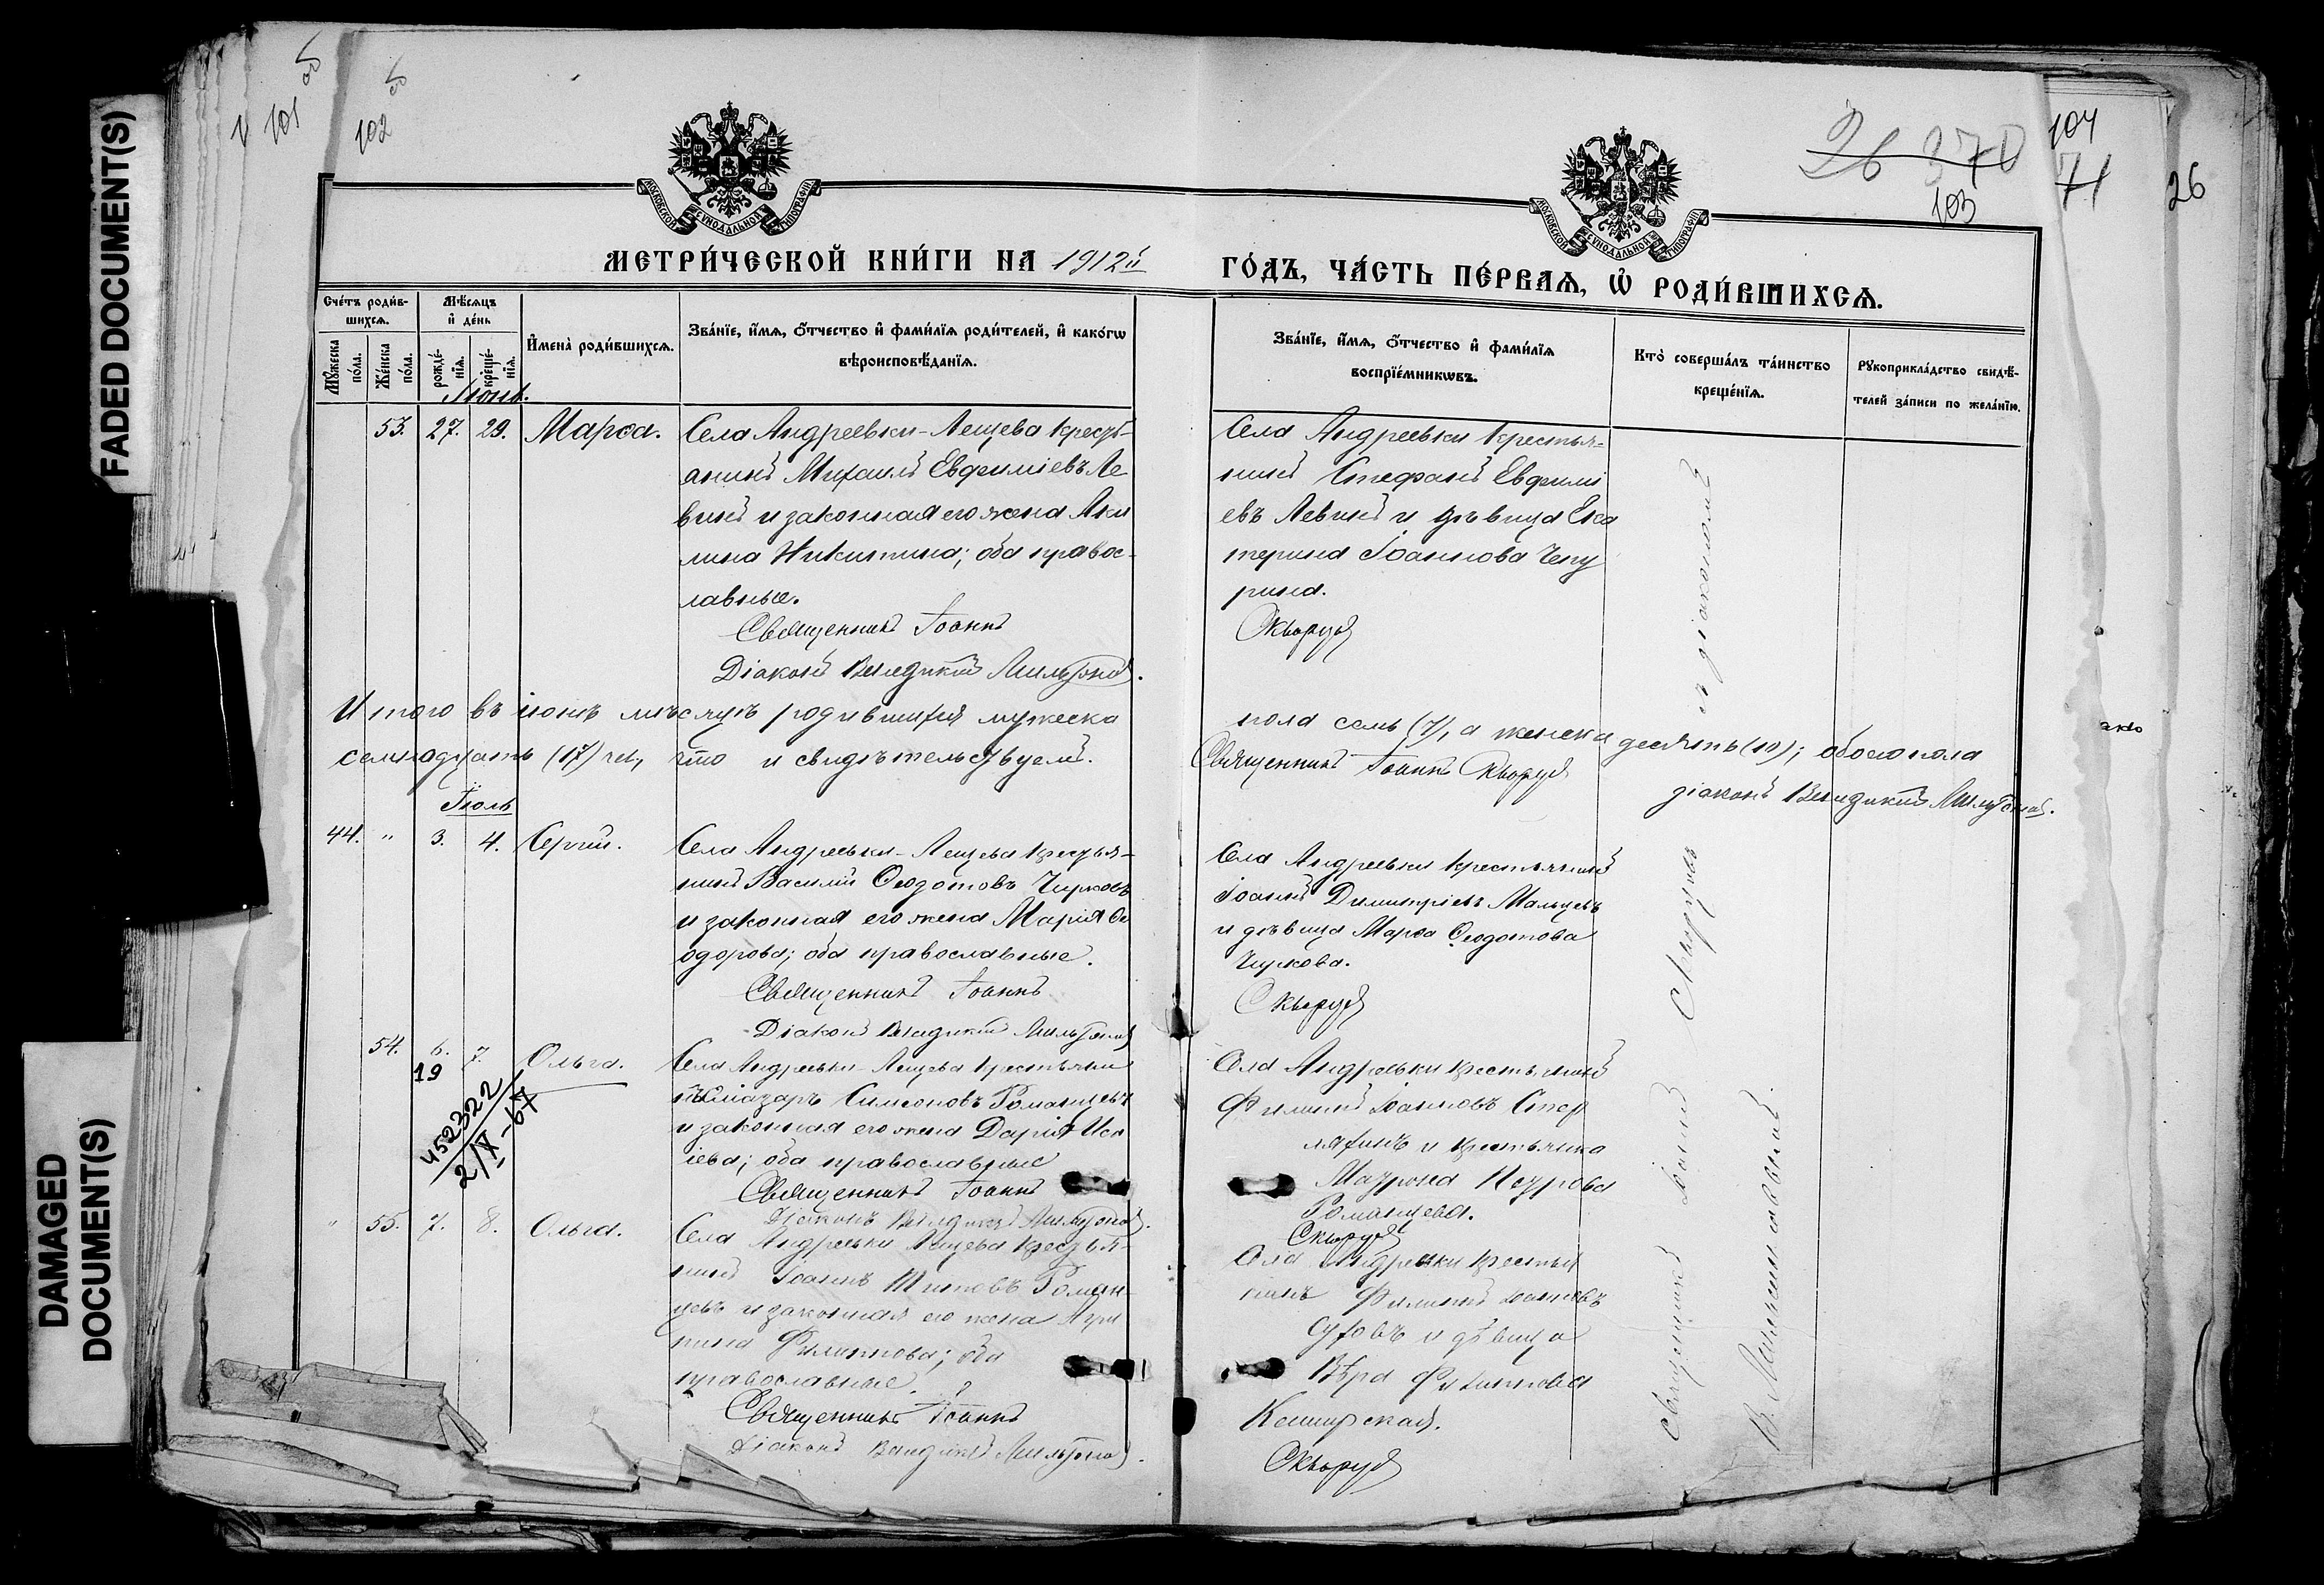 FADED DOCUMENT(S)
DAMAGED
DOCUMENT(S)
101
102
26 370
103
104
71
26
МОСКОВСКОЙ СѴНОДАЛЬНОЙ ТИПОГРАФІИ
МОСКОВСКОЙ СѴНОДАЛЬНОЙ ТИПОГРАФІИ
МЕТРИ́ЧЕСКОЙ КНИ́ГИ НА 1912й ГО́ДЪ, ЧА́СТЬ ПЕ́РВАѦ, Ѡ҆ РОДИ́ВШИХСѦ.
Сче́тъ роди́в-
шихсѧ.
Мꙋ́жеска
по́ла.
Же́нска
по́ла.
Мѣ́сѧцъ
и҆ де́нь
рожде́-
нїѧ.
креще́-
нїѧ.
И҆мена̀ роди́вшихсѧ.
Зва́нїе, и҆́мѧ, ѻ҆́тчество и҆ фами́лїѧ роди́телей, и҆ како́гѡ
вѣроисповѣ́данїѧ.
Зва́нїе, и҆́мѧ, ѻ҆́тчество и҆ фами́лїѧ
воспрїе́мникѡвъ.
Кто̀ соверша́лъ та́инство
креще́нїѧ.
Рꙋкоприкла́дство свидѣ́-
телей за́писи по жела́нїю.
Іюнь.
53. 27. 29. Марѳа.
Села Андреевки-Лещева кресть-
анинъ Михаилъ Евфиміевъ Ле
винъ и законная его жена Аки
лина Никитина; оба правос-
лавные.
Священникъ Іоаннъ
Діаконъ Венедиктъ
Села Андреевки крестья-
нинъ Стефанъ Евфимі
евъ Левинъ и дѣвица Ека
терина Іоаннова Чепу
рина.
Итого въ іюнѣ мѣсяцѣ родившихся мужеска пола семь (7), а женска десять (10); обоего пола
семнадцать (17) чел, что и свидѣтельствуемъ. Священникъ Іоаннъ
діаконъ Венедиктъ
Іюль
44. " 3. 4. Сергій.
Села Андреевки-Лещева кресть​я-
нинъ Василій Ѳеодотовъ Чирковъ
и законная его жена Марія Ѳе
одорова; оба православные.
Священникъ Іоаннъ
Діаконъ Венедиктъ
Села Андреевки крестьянинъ
Іоаннъ Димитріевъ Мальцевъ
и дѣвица Марѳа Ѳеодотова
Чиркова.
54. 6. 7. Ольга.
19
452322
2/X-67
Села Андреевки-Лещева крестьяни
нъ Елиазаръ Симеоновъ Романцевъ
и законная его жена Дарія Иса
іева; оба православные
Священникъ Іоаннъ
Діаконъ Венедиктъ
Села Андреевки крестьянинъ
Филиппъ Іоанновъ
и крестьянка
Матрона Петрова
Романцева.
" 55. 7. 8. Ольга.
Села Андреевки Лещева кресть​я-
нинъ Іоаннъ Титовъ Роман-
цевъ и законная его жена Агри
пина Филиппова; оба
православные.
Священникъ Іоаннъ
Діаконъ Венедиктъ
Села Андреевки крестья
нинъ Филиппъ Іоанновъ
и дѣвица
Вѣра Филиппова
Каширская.
Священникъ Іоаннъ
съ діакономъ